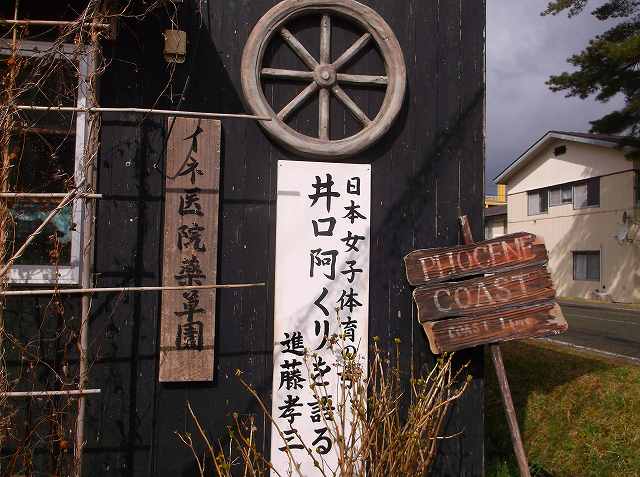 イネ医院薬草園
日本女子体育の
井口阿くりを語る
進藤孝三
PLIOCENE
COAST